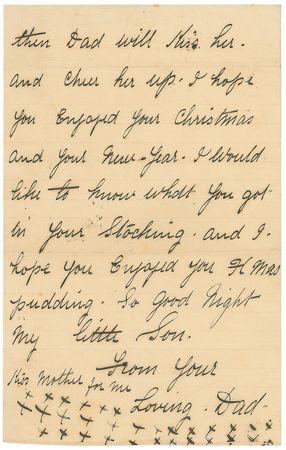 then Dad will Kiss her.
and cheer her up. I hope
you Engoyed your Christmas
and your New-Year. I would
like to know what you got
in your Stocking. and I.
hope you Engoyed you Xmas
pudding. So Good Night
my little Son.
From Your
Kiss Mother for me
Loving. Dad.
x x x x x x
x x x x x x x x x x x x
x x x x x x x x x x